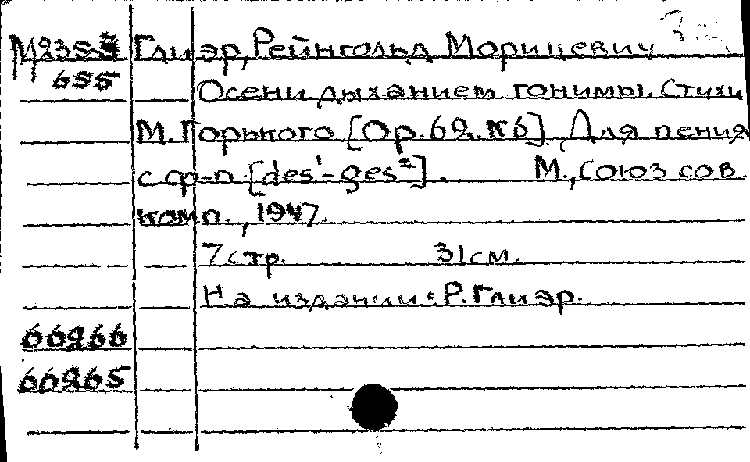 М235-3 Глиэр, Рейнгольд Морицевич
655 Осени дыханием гонимы. Стихи
М. Горького [Ор. 69. №6] Для пения
с ф-п [des¹-ges²]. М., Союз сов.
комп., 1947.
7 стр. 31 см.
На издании: Р. Глиэр.
60266
60265